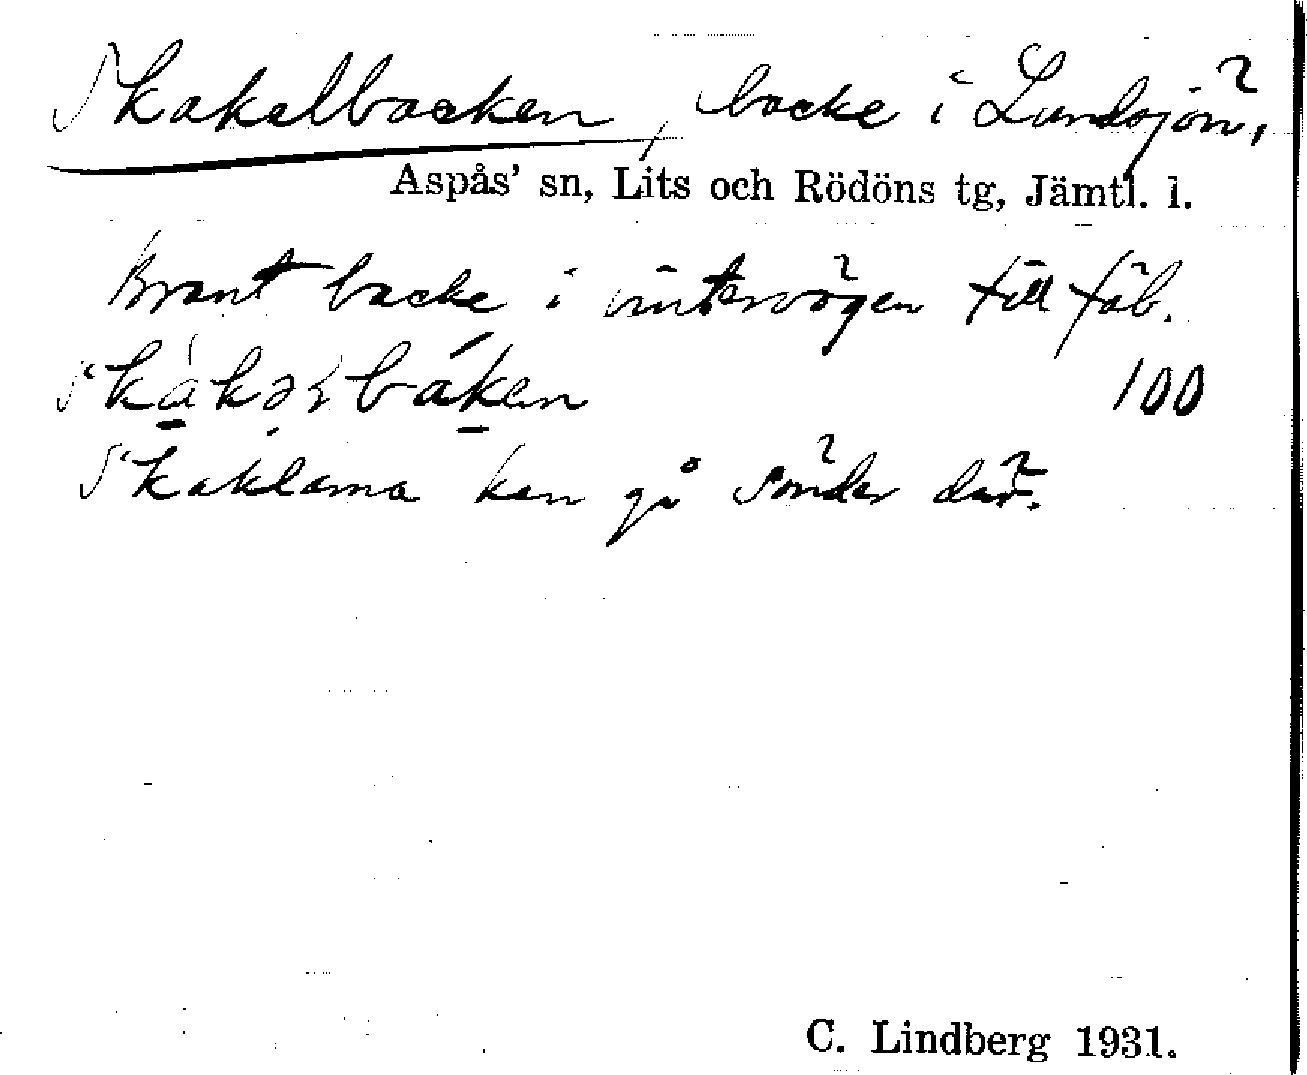 Skakelbacken, backe i Lundsjön,
Aspås' sn, Lits och Rödöns tg, Jämtl. l.
Brant backe i vintervägen till fäb.
100
Skaklarna kan gå sönder där.
C. Lindberg 1931.